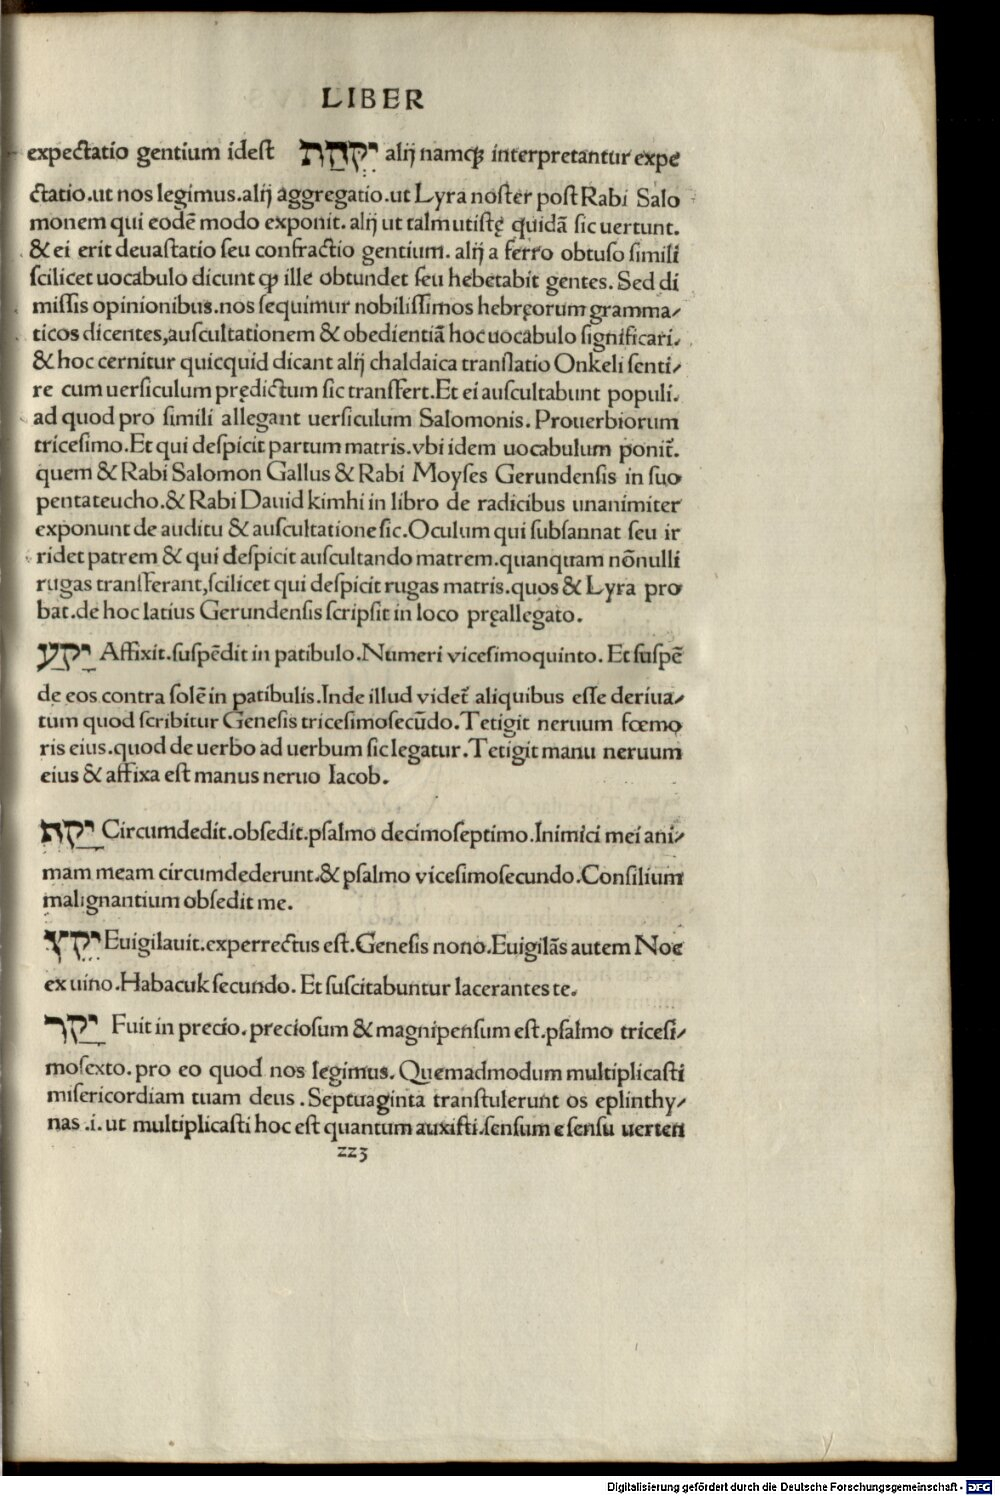 LIBER
expectatio gentium idest יִקְּהַת alij namq̃ interpretantur expe
ctatio.ut nos legimus.alij aggregatio.ut Lyra noster post Rabi Salo
monem qui eodē modo exponit. alij ut talmutistę quidā sic uertunt.
& ei erit deuastatio seu confractio gentium. alij a ferro obtuso simili
scilicet uocabulo dicunt ꝙ ille obtundet seu hebetabit gentes. Sed di
missis opinionibus.nos sequimur nobilissimos hebręorum gramma/
ticos dicentes,auscultationem & obedientiā hoc uocabulo significari.
& hoc cernitur quicquid dicant alij chaldaica translatio Onkeli senti/
re cum uersiculum prędictum sic transfert.Et ei auscultabunt populi.
ad quod pro simili allegant uersiculum Salomonis. Prouerbiorum
tricesimo.Et qui despicit partum matris.vbi idem uocabulum ponit̃.
quem & Rabi Salomon Gallus & Rabi Moyses Gerundensis in suo
pentateucho.& Rabi Dauid kimhi in libro de radicibus unanimiter
exponunt de auditu & auscultatione sic.Oculum qui subsannat seu ir
ridet patrem & qui despicit auscultando matrem.quanquam nōnulli
rugas transferant,scilicet qui despicit rugas matris.quos & Lyra pro
bat.de hoc latius Gerundensis scripsit in loco pręallegato.
יָקַע Affixit.suspēdit in patibulo.Numeri vicesimoquinto. Et suspē
de eos contra solē in patibulis.Inde illud videt̃ aliquibus esse deriua/
tum quod scribitur Genesis tricesimosecūdo.Tetigit neruum fœmo
ris eius.quod de uerbo ad uerbum sic legatur.Tetigit manu neruum
eius & affixa est manus neruo Iacob.
יָקַף Circumdedit.obsedit.psalmo decimoseptimo.Inimici mei ani/
mam meam circumdederunt.& psalmo vicesimosecundo.Consilium
malignantium obsedit me.
יָקַץ Euigilauit.experrectus est.Genesis nono.Euigilās autem Noe
ex uino.Habacuk secundo. Et suscitabuntur lacerantes te.
יָקַר Fuit in precio. preciosum & magnipensum est.psalmo tricesi/
mosexto. pro eo quod nos legimus. Quemadmodum multiplicasti
misericordiam tuam deus . Septuaginta transtulerunt os eplinthy/
nas .i. ut multiplicasti hoc est quantum auxisti.sensum e sensu uerten
zz3
Digitalisierung gefördert durch die Deutsche Forschungsgemeinschaft - DFG